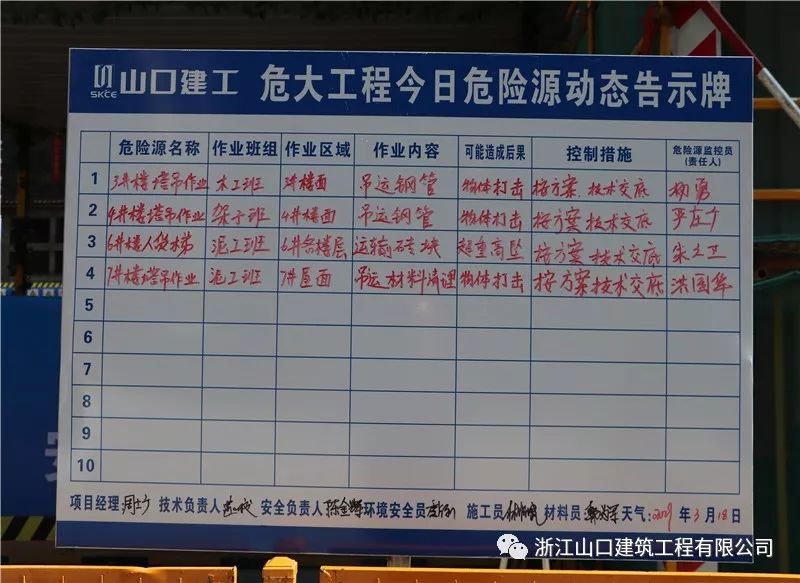 SKCE 山口建工 危大工程今日危险源动态告示牌
危险源名称 作业班组 作业区域 作业内容 可能造成后果 控制措施 危险源监控员(责任人)
1 3#楼塔吊作业 木工班 3#楼面 吊运钢管 物体打击 按方案.技术交底 杨勇
2 4#楼塔吊作业 架子班 4#楼面 吊运钢管 物体打击 按方案.技术交底
3 6#楼人货梯 泥工班 6#各楼层 运输砖块 超重高坠 按方案技术交底 朱立卫
4 7#楼塔吊作业 泥工班 7#屋面 吊运材料清理 物体打击 按方案技术交底 洪国华
5
6
7
8
9
10
项目经理: 技术负责人 安全负责人 环境安全员 施工员 材料员 天气: 年3月18日
浙江山口建筑工程有限公司